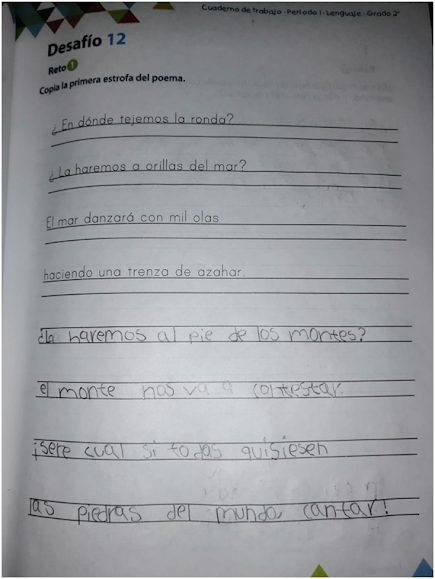 Cuaderno de trabajo · Periodo 1 · Lenguaje · Grado 2°
Desafío 12
Reto 1
Copia la primera estrofa del poema.
¿En dónde tejemos la ronda?
¿La haremos a orillas del mar?
El mar danzará con mil olas
haciendo una trenza de azahar.
¿la haremos al pie de los montes?
el monte nos va a contestar.
¡sere cual si todas quisiesen
las piedras del mundo cantar!